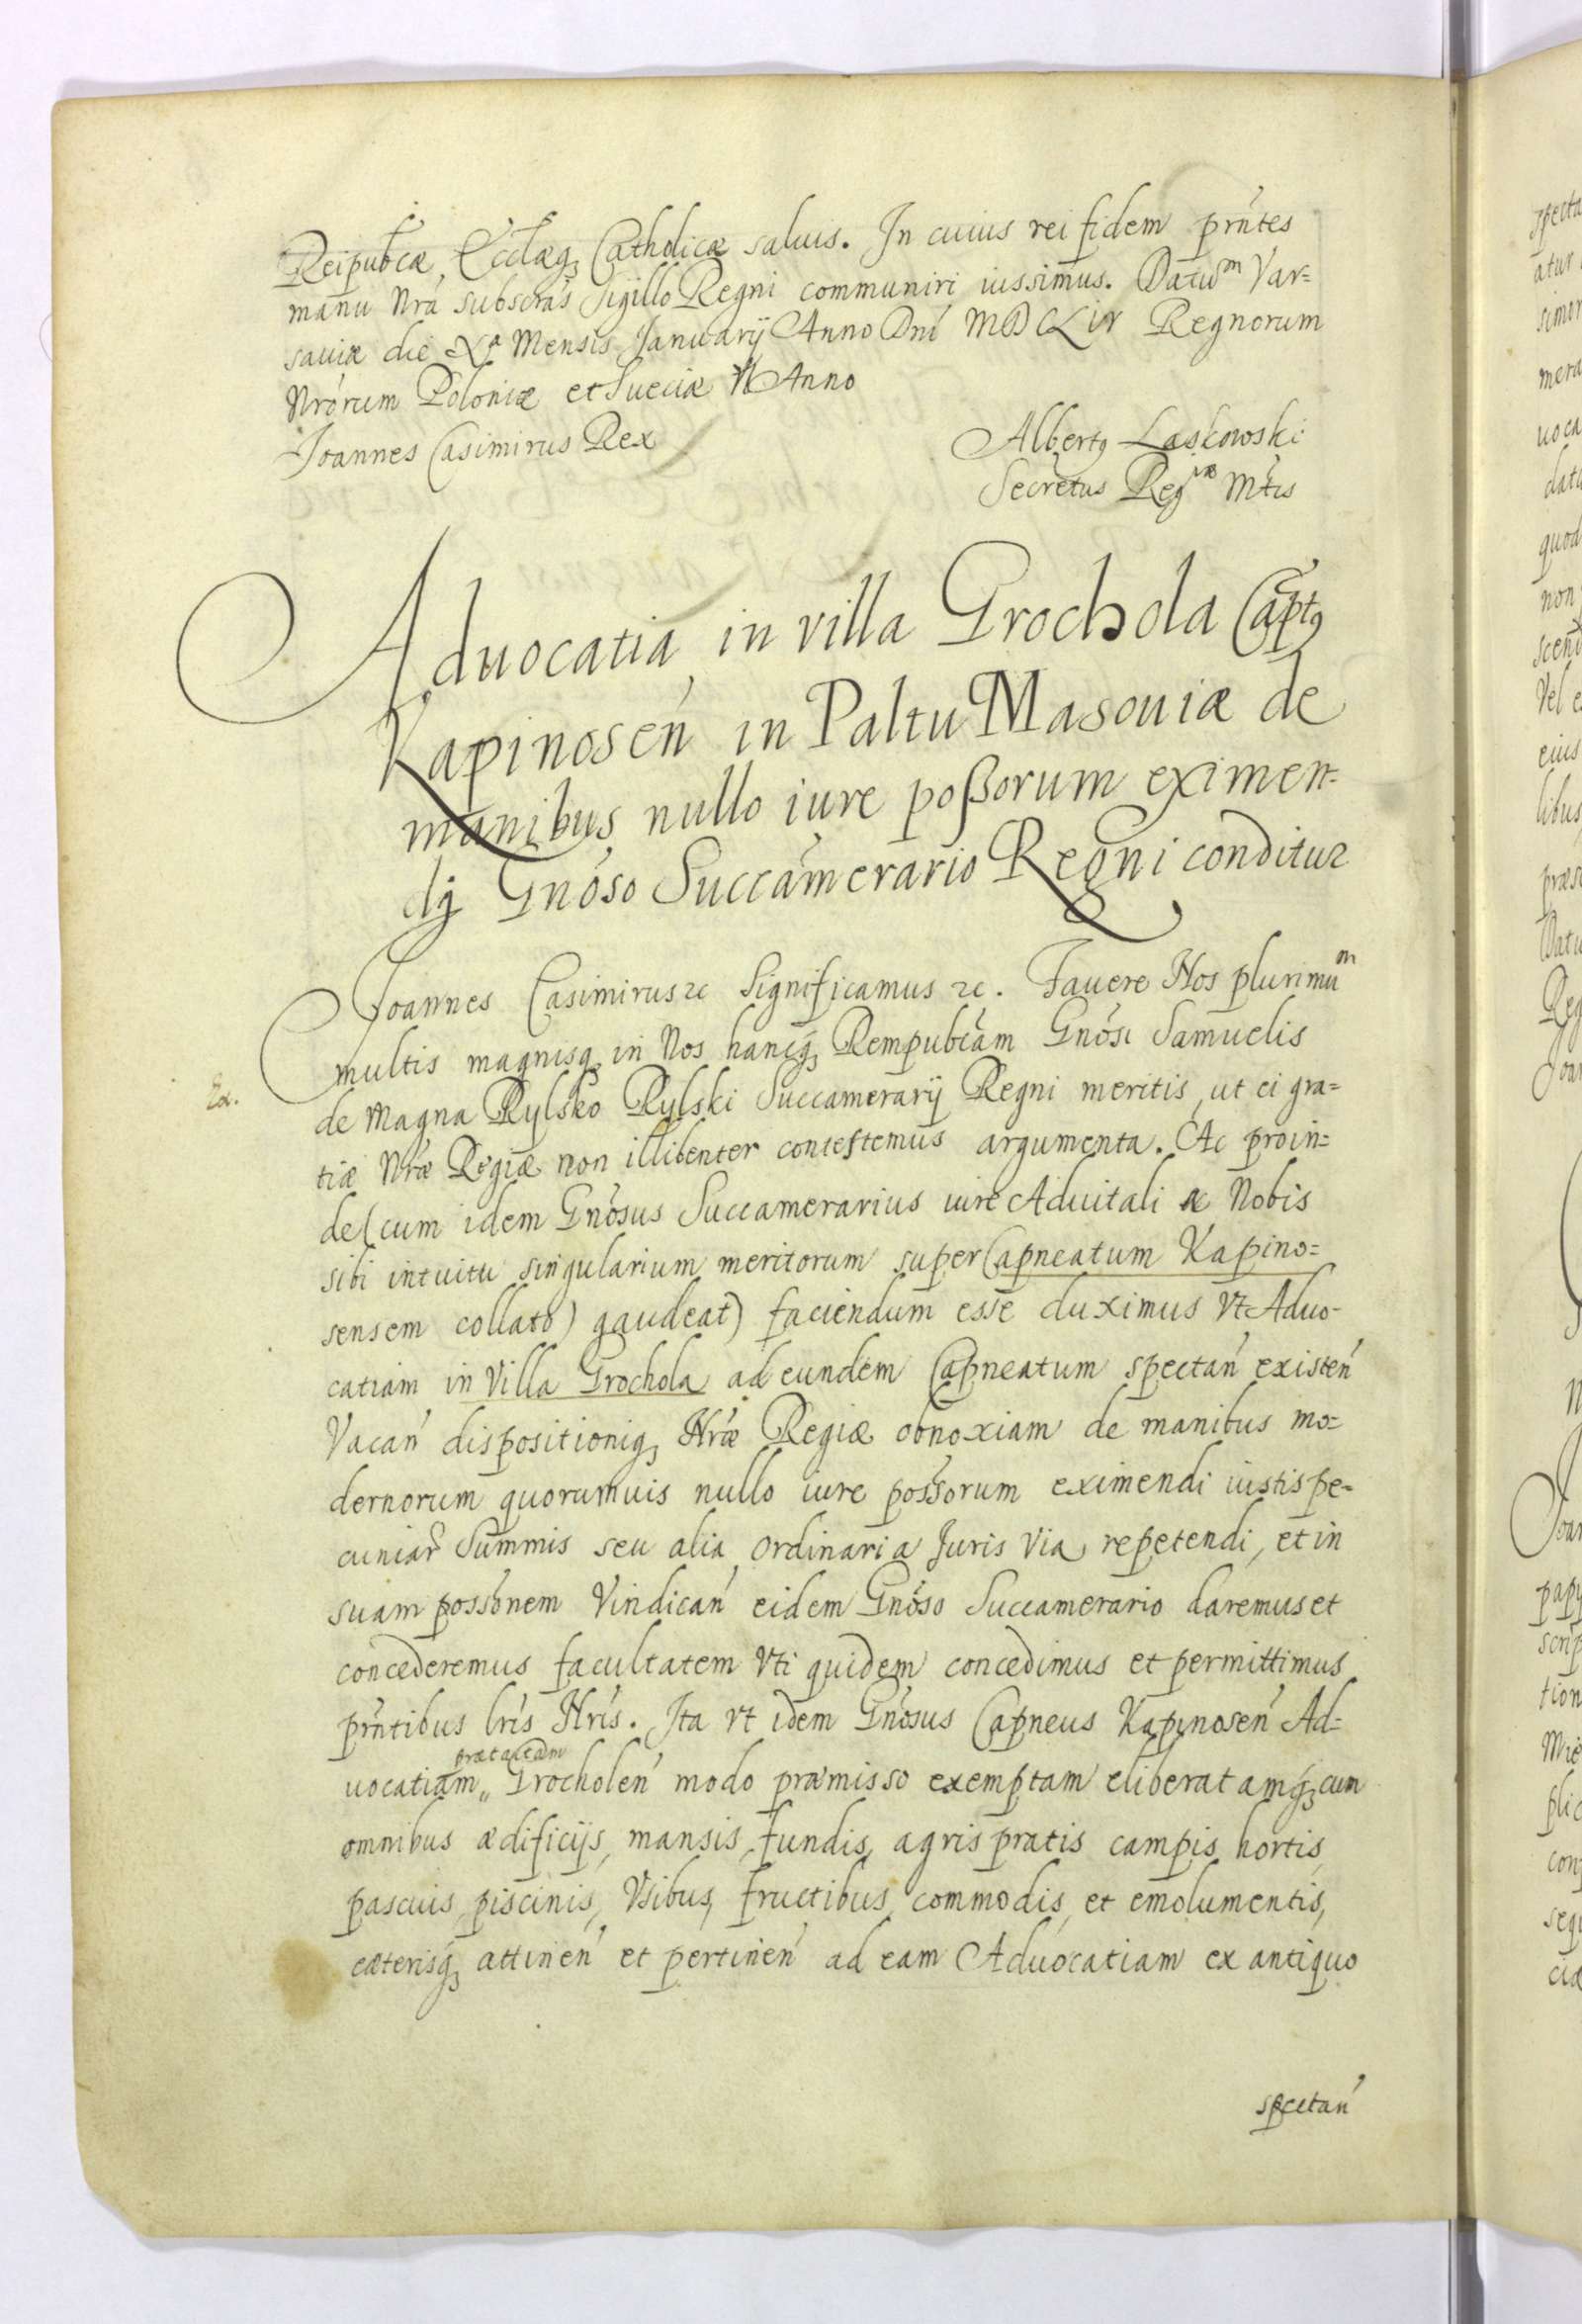 Reipubcæ, Ecclæq, Catholicæ saluis. In cuius rei fidem prñtes
manu Nrá subscrás Sigillo Regni communiri iussimus. Datum Var=
sauiæ die Xa Mensis Januarij Anno Dní MDCLIV Regnorum
Nrórum Poloniæ et Sueciæ VI Anno
Joannes Casimirus Rex
Albertq Laskowski
Secretus Regiæ Mtis
Aduocatia in villa Grochola Captq
Kapinosen in Paltu Masouiæ de
manibus nullo iure poßorum eximen=
dj Gnóso Succamerario Regni conditur
Joannes Casimirus &c Significamus &c. Fauere Nos plurimum
multis magnisq, in Nos hancq, Rempubcam Gnósi Samuelis
Ex.
de Magna Rylsko Rylski Succamerarij Regni meritis, ut ei gra=
tiæ Nræ Regiæ non illibenter contestemus argumenta. Ac proin=
de (cum idem Gnósus Succamerarius iure Aduitali a Nobis
sibi intuitu singularium meritorum super Capneatum Kapino=
sensem collato) gaudeat) faciendum esse duximus Vt Aduo-
catiam in Villa Grochola ad eundem Capneatum spectań existeń
Vacań dispositioniq, Nræ Regiæ obnoxiam de manibus mo=
dernorum quorumuis nullo iure possorum eximendi iustis pe=
cuniar Summis seu alia ordinaria Juris Via repetendi, et in
suam possónem Vindicań eidem Gnóso Succamerario daremus et
concederemus facultatem Vti quidem concedimus et permittimus
prñtibus lrís Nrís. Ita vt idem Gnósus Capneus Kapinoseń Ad=
prætactam
uocatiam„ Grocholeń modo præmisso exemptam eliberatamq, cum
omnibus ædificijs, mansis, fundis, agris pratis campis hortis,
pascuis, piscinis, Vsibus, fructibus, commodis, et emolumentis,
cæterisq, attineń et pertineń ad eam Aduocatiam ex antiquo
spectań